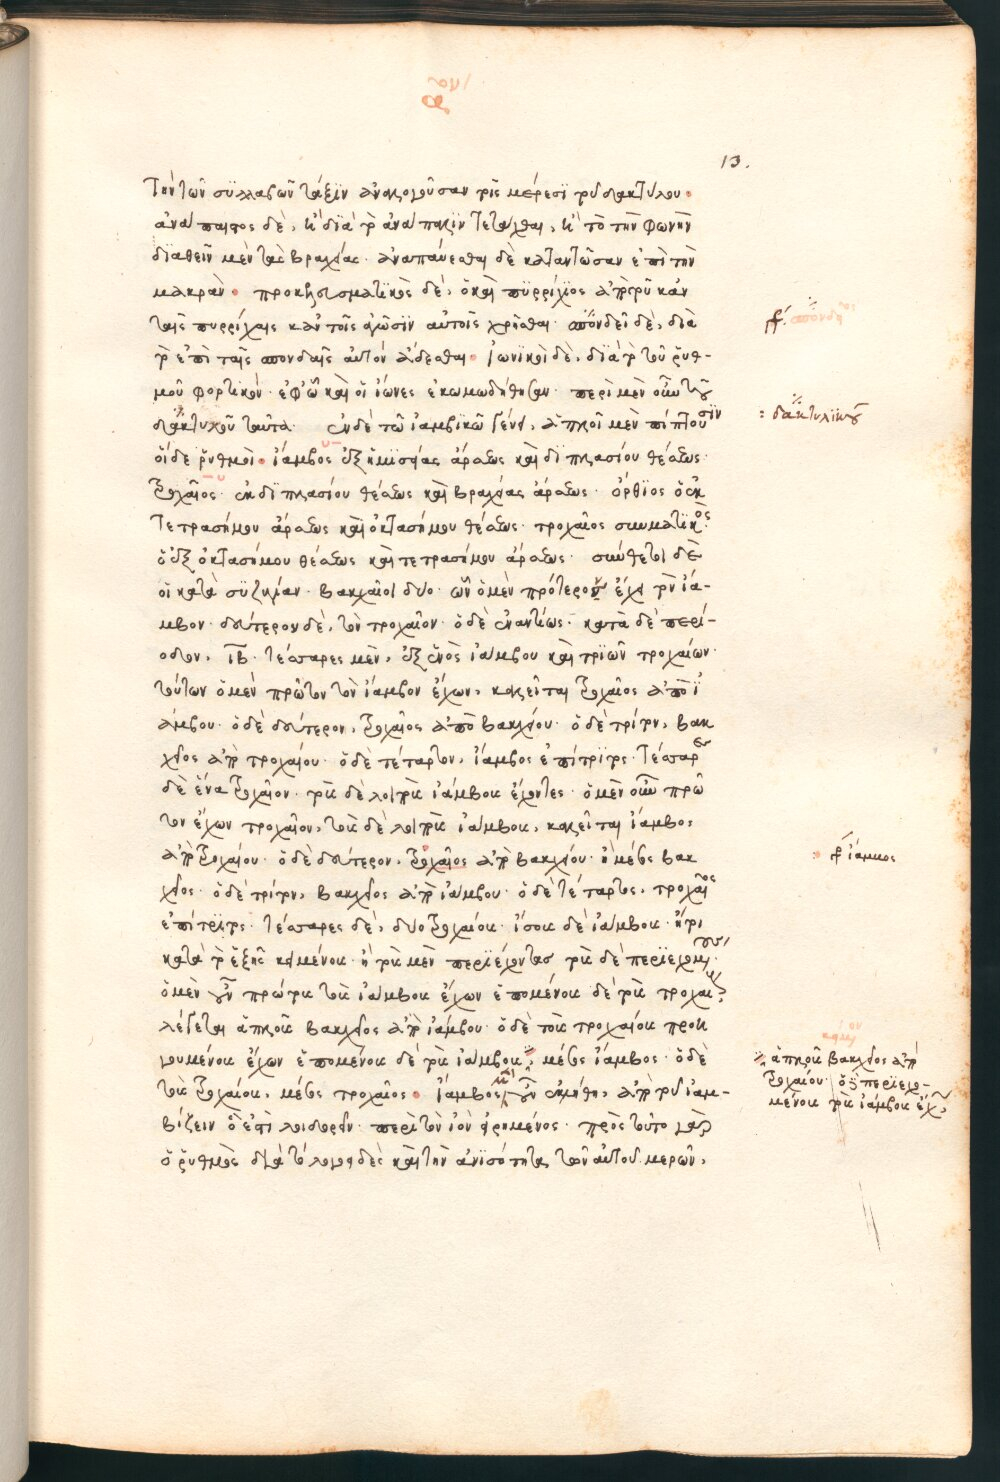 α ον
13.
τὴν τῶν συλλαβῶν τάξϊν ἀναλογοῦσαν τοῖς μέρεσϊ τοῦ δακτύλου·
ἀνάπαιστος δὲ, ἢ διὰ τὸ ἀνάπαλϊν τετάχθαι, ἢ τὸ τὴν φωνὴν
διαθεῖν μὲν τὰς βραχείας· ἀναπαύεσθαι δὲ καταντῶσαν ἐπὶ τὴν
μακρὰν· προκελευσματϊκὸς δὲ, ὁ καὶ πϋρρίχϊος ἀπὸ τοῦ κἀν
ταῖς πυρρίχαις κἀν τοῖς ἀγῶσϊν αὐτοῖς χρῆσθαι· σπονδεῖ δὲ, διὰ
τὸ ἐπὶ ταῖς σπονδαῖς αὐτὸν ᾄδεσθαι· ἰωνϊκοὶ δὲ, διὰ τὸ τοῦ ῥυθ-
μοῦ φορτϊκόν· ἐφ' ᾧ καὶ οἱ ἴωνες ἐκωμωδήθησαν· περὶ μὲν οὖν τοῦ
δακτυλικοῦ ταῦτα· ἐν δὲ τῷ ἰαμβικῷ γένει, ἁπλοῖ μὲν πίπτουσϊν
οἵδε ῥυθμοὶ· ἴαμβος ἐξ ἡμϊσείας ἄρσεως καὶ διπλασίου θέσεως·
τροχαῖος· ἐκ διπλασίου θέσεως καὶ βραχείας ἄρσεως· ὄρθϊος ὁ ἐκ
τετρασήμου ἄρσεως καὶ ὀκτασήμου θέσεως· τροχαῖος σημαντϊκὸς·
ὁ ἐξ ὀκτασήμου θέσεως καὶ τετρασήμου ἄρσεως· σύνθετοι δὲ
οἱ κατὰ συζυγίαν· βακχεῖοι δύο· ὧν ὁ μὲν πρότερον ἔχει τὸν ἴα-
μβον· δεύτερον δὲ, τὸν τροχαῖον· ὁ δὲ ἐναντίως· κατὰ δὲ περί-
οδον, ιβ· τέσσαρες μὲν, ἐξ ἑνὸς ἰάμβου καὶ τρϊῶν τροχαίων·
τούτων ὁ μὲν πρῶτον τὸν ἴαμβον ἔχων, καλεῖται τροχαῖος ἀπὸ ἰ
άμβου· ὁ δὲ δεύτερον, τροχαῖος ἀπὸ βακχείου· ὁ δὲ τρίτον, βακ
χεῖος ἀπὸ τροχαίου· ὁ δὲ τέταρτον, ἴαμβος ἐπίτρϊτος· τέσσαρες
δὲ ἕνα τροχαῖον· τοὺς δὲ λοιποὺς ἰάμβους ἔχοντες· ὁ μὲν οὖν πρῶ
τον ἔχων τροχαῖον, τοὺς δὲ λοιποὺς ἰάμβους, καλεῖται ἴαμβος
ἀπὸ τροχαίου· ὁ δὲ δεύτερον, τροχαῖος ἀπὸ βακχείου· ἢ μέσος βακ
χεῖος· ὁ δὲ τρίτον, βακχεῖος ἀπὸ ἰάμβου· ὁ δὲ τέταρτος, τροχαῖος
ἐπίτρϊτος· τέσσαρες δὲ, δύο τροχαίους· ἴσους δὲ ἰάμβους· ἤτοι
κατὰ τὸ ἑξῆς κειμένους· ἢ τοὺς μὲν περϊέχοντας τοὺς δὲ περϊεχομένους·
ὁ μὲν οὖν πρώτους τοὺς ἰάμβους ἔχων ἑπομένους δὲ τοὺς τροχαίους,
λέγεται ἁπλοῦς βακχεῖος ἀπὸ ἰάμβου· ὁ δὲ τοὺς τροχαίους προη
γουμένους ἔχων ἑπομένους δὲ τοὺς ἰάμβους, μέσος ἴαμβος· ὁ δὲ
τοὺς τροχαίους, μέσος τροχαῖος· ἴαμβος μὲν οὖν ἐκλήθη, ἀπὸ τοῦ ἰαμ-
βίζειν ὅ ἐστι λοιδορεῖν· περὶ τὸν ἰὸν εἰρημένος· πρὸς τοῦτο γὰρ
ὁ ῥυθμὸς διὰ τὸ λογοειδὲς καὶ τὴν ἀνϊσότητα τῶν αὐτοῦ μερῶν,
γρ. σπονδεῖος
: δακτυλϊκοῦ
γρ ἴαμμος
ἁπλοῦς βακχεῖος ἀπὸ
τροχαίου· ὁ δὲ περϊεχο-
μένους τοὺς ἰάμβους ἔχων,